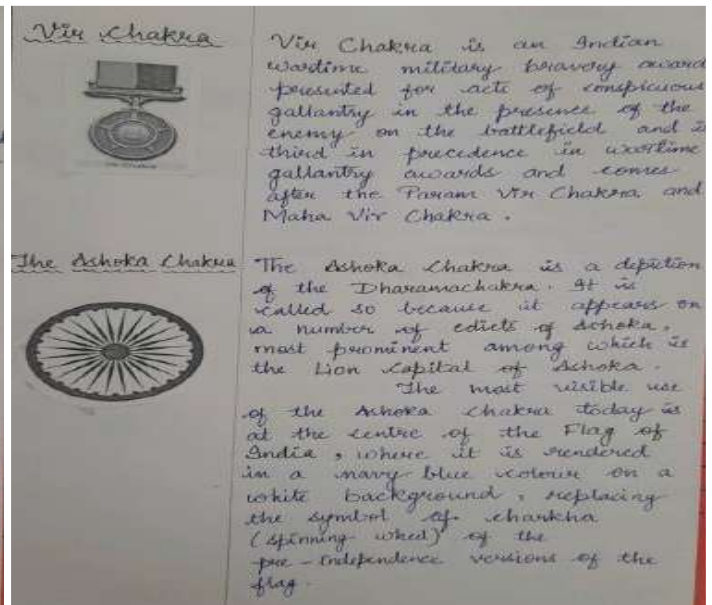 Vir Chakra
Vir Chakra is an Indian
wartime military bravery award
presented for acts of conspicuous
gallantry in the presence of the
enemy on the battlefield and is
third in precedence in wartime
gallantry awards and comes
after the Param Vir Chakra and
Maha Vir Chakra.
The Ashoka Chakra
The Ashoka Chakra is a depiction
of the Dharamachakra. It is
called so because it appears on
a number of edicts of Ashoka,
most prominent among which is
the Lion Capital of Ashoka.
The most visible use
of the Ashoka chakra today is
at the centre of the Flag of
India, where it is rendered
in a navy blue colour on a
white background, replacing
the symbol of charkha
(spinning wheel) of the
pre-Independence versions of the
flag.